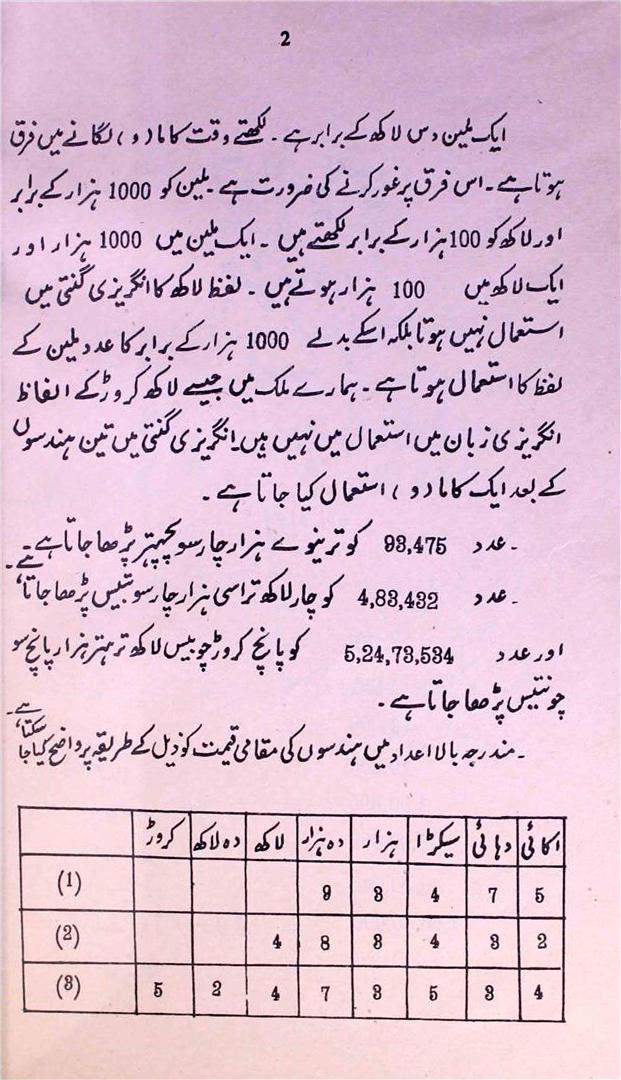 2
ایک ملین دس لاکھ کے برابر ہے ۔ لکھتے وقت کاما ( و ) لگانے میں فرق
ہوتا ہے ۔ اس فرق پر غور کرنے کی ضرورت ہے ۔ ملین کو 1000 ہزار کے برابر
اور لاکھ کو 100 ہزار کے برابر لکھتے ہیں ۔ ایک ملین میں 1000 ہزار اور
ایک لاکھ میں 100 ہزار ہوتے ہیں ۔ لفظ لاکھ کا انگریزی گنتی میں
استعمال نہیں ہوتا بلکہ اسکے بدلے 1000 ہزار کے برابر کا عدد ملین کے
لفظ کا استعمال ہوتا ہے ۔ ہمارے ملک میں جیسے لاکھ کروڑ کے الفاظ
انگریزی زبان میں استعمال میں نہیں ہیں۔ انگریزی گنتی میں تین ہندسوں
کے بعد ایک کاما ( و ) استعمال کیا جاتا ہے ۔
۔ عدد 93,475 کو ترینوے ہزار چار سو پچہتر پڑھا جاتا ہے ۔
۔ عدد 4,83,432 کو چار لاکھ تراسی ہزار چار سو بتیس پڑھا جاتا ہے ۔
اور عدد 5,24,73,534 کو پانچ کروڑ چوبیس لاکھ تہتر ہزار پانچ سو
چونتیس پڑھا جاتا ہے ۔
۔ مندرجہ بالا اعداد میں ہندسوں کی مقامی قیمت کو ذیل کے طریقہ پر واضح کیا جا سکتا ہے ۔
اکائی دہائی سیکڑا ہزار دہ ہزار لاکھ دہ لاکھ کروڑ
5 7 4 3 9 (1)
2 3 4 3 8 4 (2)
4 3 5 3 7 4 2 5 (3)